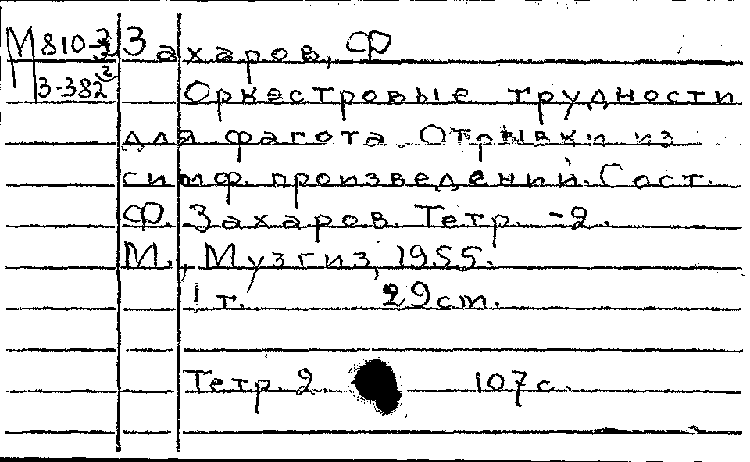 М 810-3/2 Захаров, Ф
3-382² Оркестровые трудности
для фагота. Отрывки из
симф. произведений. Сост.
Ф. Захаров. Тетр. -2.
М., Музгиз, 1955.
1 т. 29 cm.
Тетр. 2. 107 с.